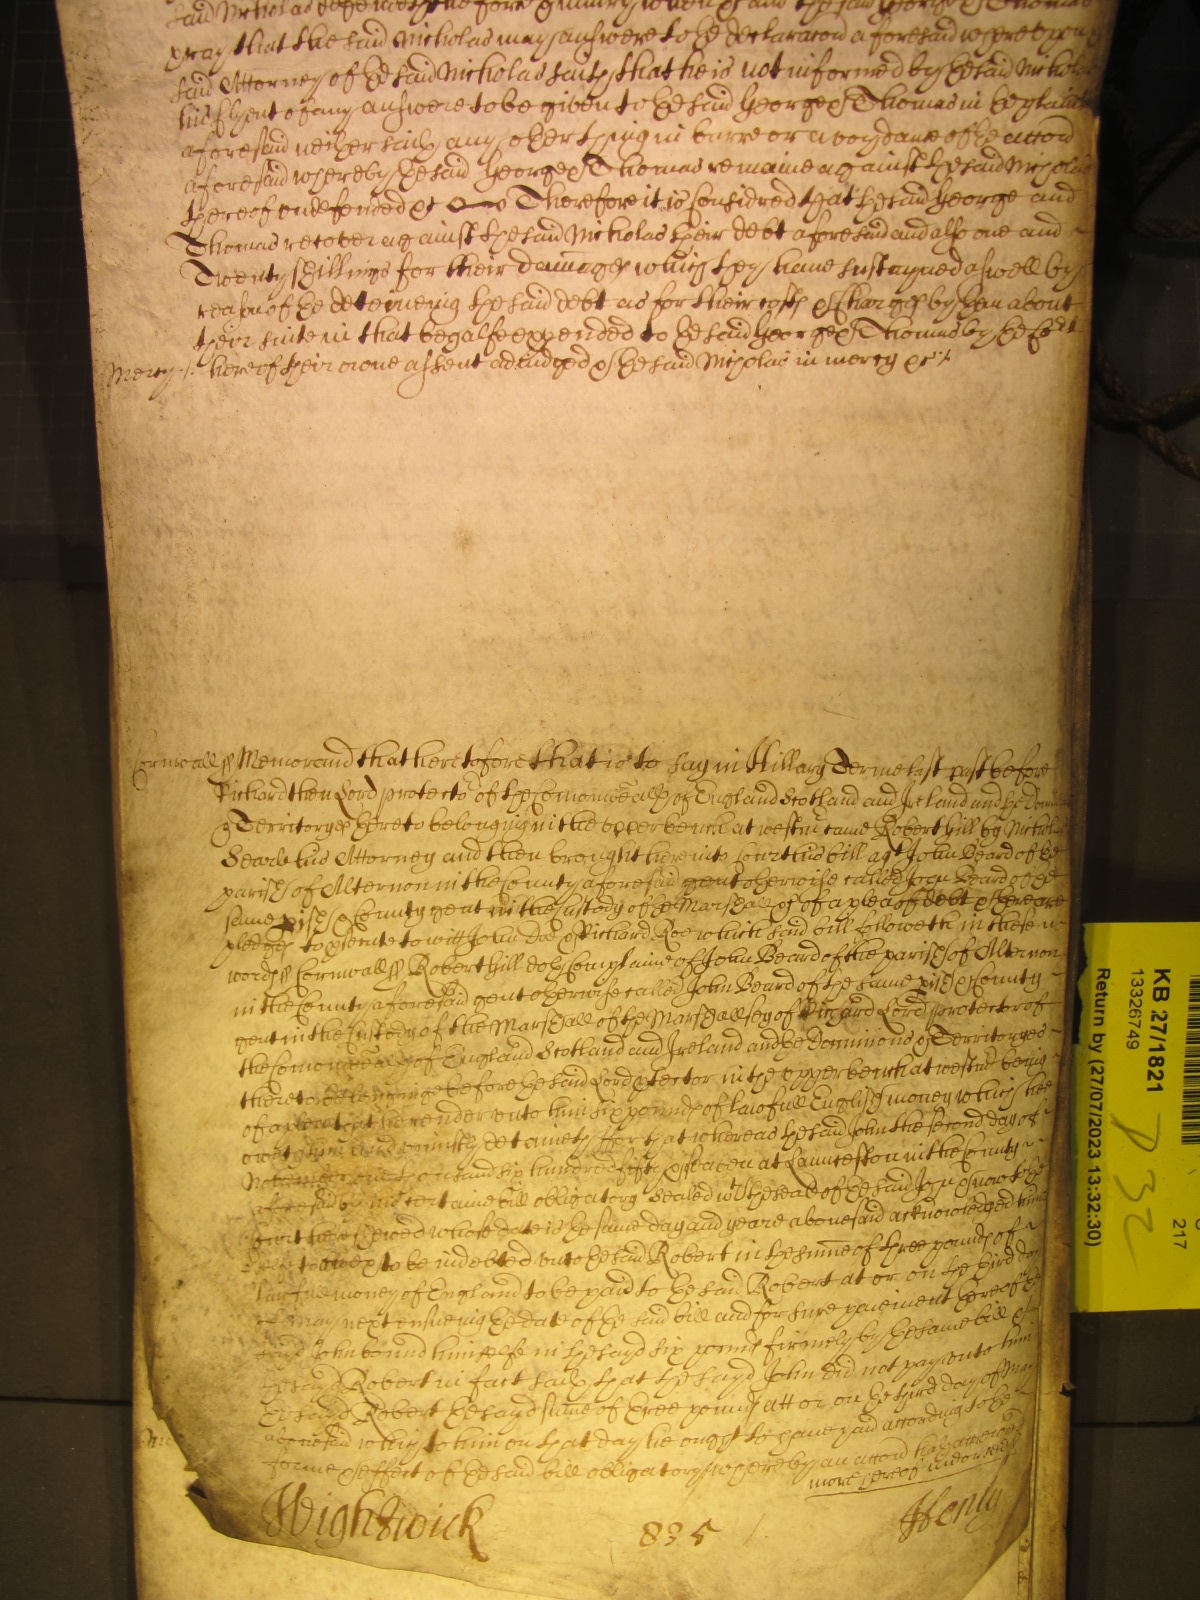 pray that the said Nicholas may answere to the declaracon aforesaid whereupon the
said Attorney of the said Nicholas saith that he is not informed by the said Nicholas
his Clyent of any answere to be given to the said George & Thomas in the plainte
aforesaid neither saith any other thing in barre or avoydance of the accon
aforesaid whereby the said George & Thomas remaine against the said Nicholas
thereof undefended &c Therefore it is considred that the said George and
Thomas recover against the said Nicholas their debt aforesaid and also one and
Twenty shillings for their damages which they have sustayned aswell by
reason of the deteineing the said debt as for their costs & Charges by them about
their suite in that behalfe expended to the said George & Thomas by the Court
Mercy here of their owne assent adiudged & the said Nicholas in mercy &c
Cornwall ss Memorand that heretofore that is to say in Hillary Terme last past before
Richard then Lord protector of the Comonwealth of England Scotland and Ireland and the Dominions
& Territoryes thereto belonging in the upper bench at westmr came Robert Hill by Nicholas
Searle his Attorney and then brought here into Court his bill agt John Beard of the
parish of Alternon in the County aforesaid gent otherwise called John Beard of the
same pish & County gent in the Custody of the Marshall &c of a plea of debt & there are
pledges to psecute to witt John Doe & Richard Roe which said bill followeth in these
words ss Cornwall ss Robert Hill doth Complaine of John Beard of the parish of Alternon
in the County aforesaid gent otherwise called John Beard of the same pish & County
gent in the Custody of the Marshall of the Marshallsey of Richard Lord protector of
the Comonwealth of England Scotland and Ireland and the Dominions & Territoryes
thereto belonginge before the said Lord ptector in the upper bench at westmr being
of a plea that he render unto him six pounds of lawfull English money which hee
oweth him and uniustly detaineth for that whereas the said John the second day of
November one thousand six hundred fifty & seaven at Launceston in the County
aforesaid by his certaine bill obligatory Sealed with the seale of the said John & now to the
Court here shewed whose date is the same day and yeare abovesaid acknowledged him
selfe to owe & to be indebted unto the said Robert in the sume of three pounds of
lawfull money of England to be paid to the said Robert at or on the third day
of May next ensueing the date of the said bill and for sure paieiment thereof the
said John bound himselfe in the sayd six pounds firmely by the same bill &
the sayd Robert in fact saith that the sayd John did not pay unto him
the sayd Robert the sayd sume of three pounds att or on the third day of May
abovesaid which to him on that day he ought to have paid according to the
forme & effect of the said bill obligatory whereby an accon hath accrewed
more hereof indorsed
Wightwick 835 Henly
KB 27/1821
13326749
Return by (27/07/2023 13:32:30)
217
P32